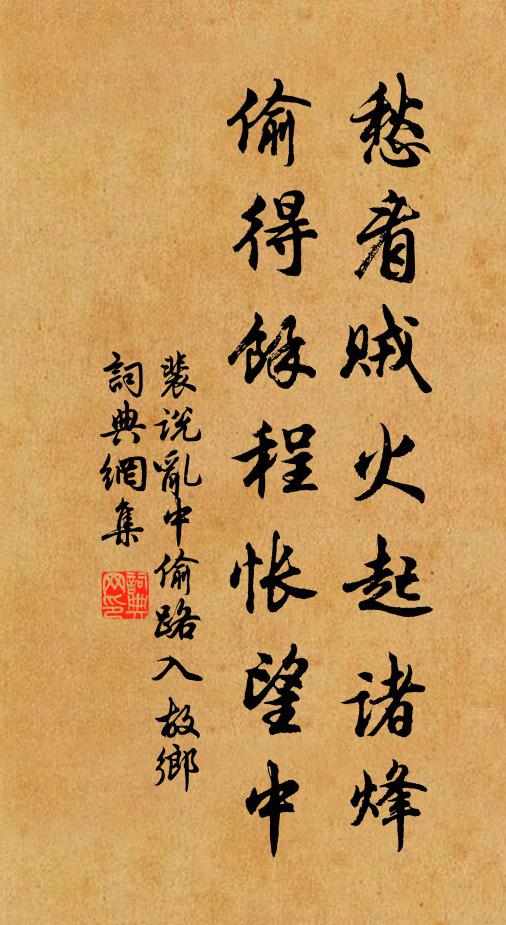 愁看贼火起诸烽
偷得餘程怅望中
裴说亂中偷路入故鄉
詞典網集
詞典网印